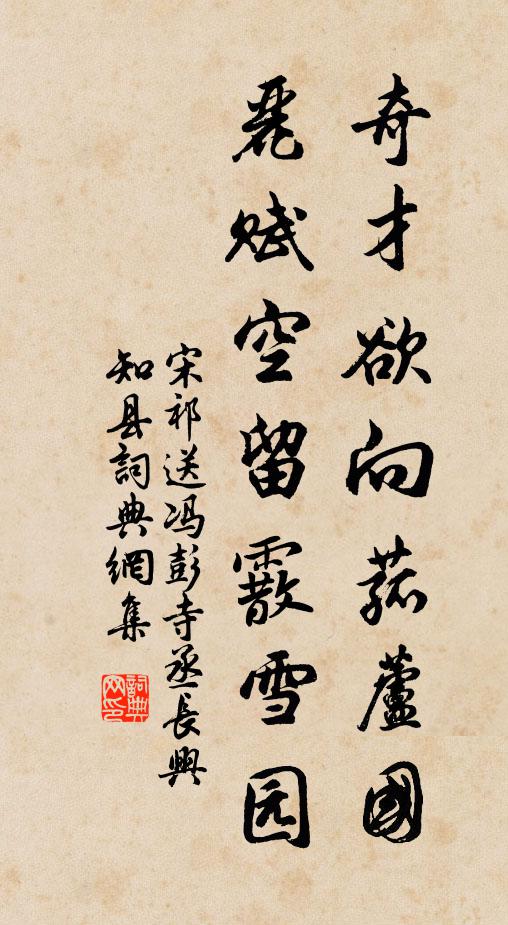 奇才欲向菰蘆國
麗賦空留霰雪园
宋祁送冯彭寺丞長興
知县詞典網集
詞典
网印